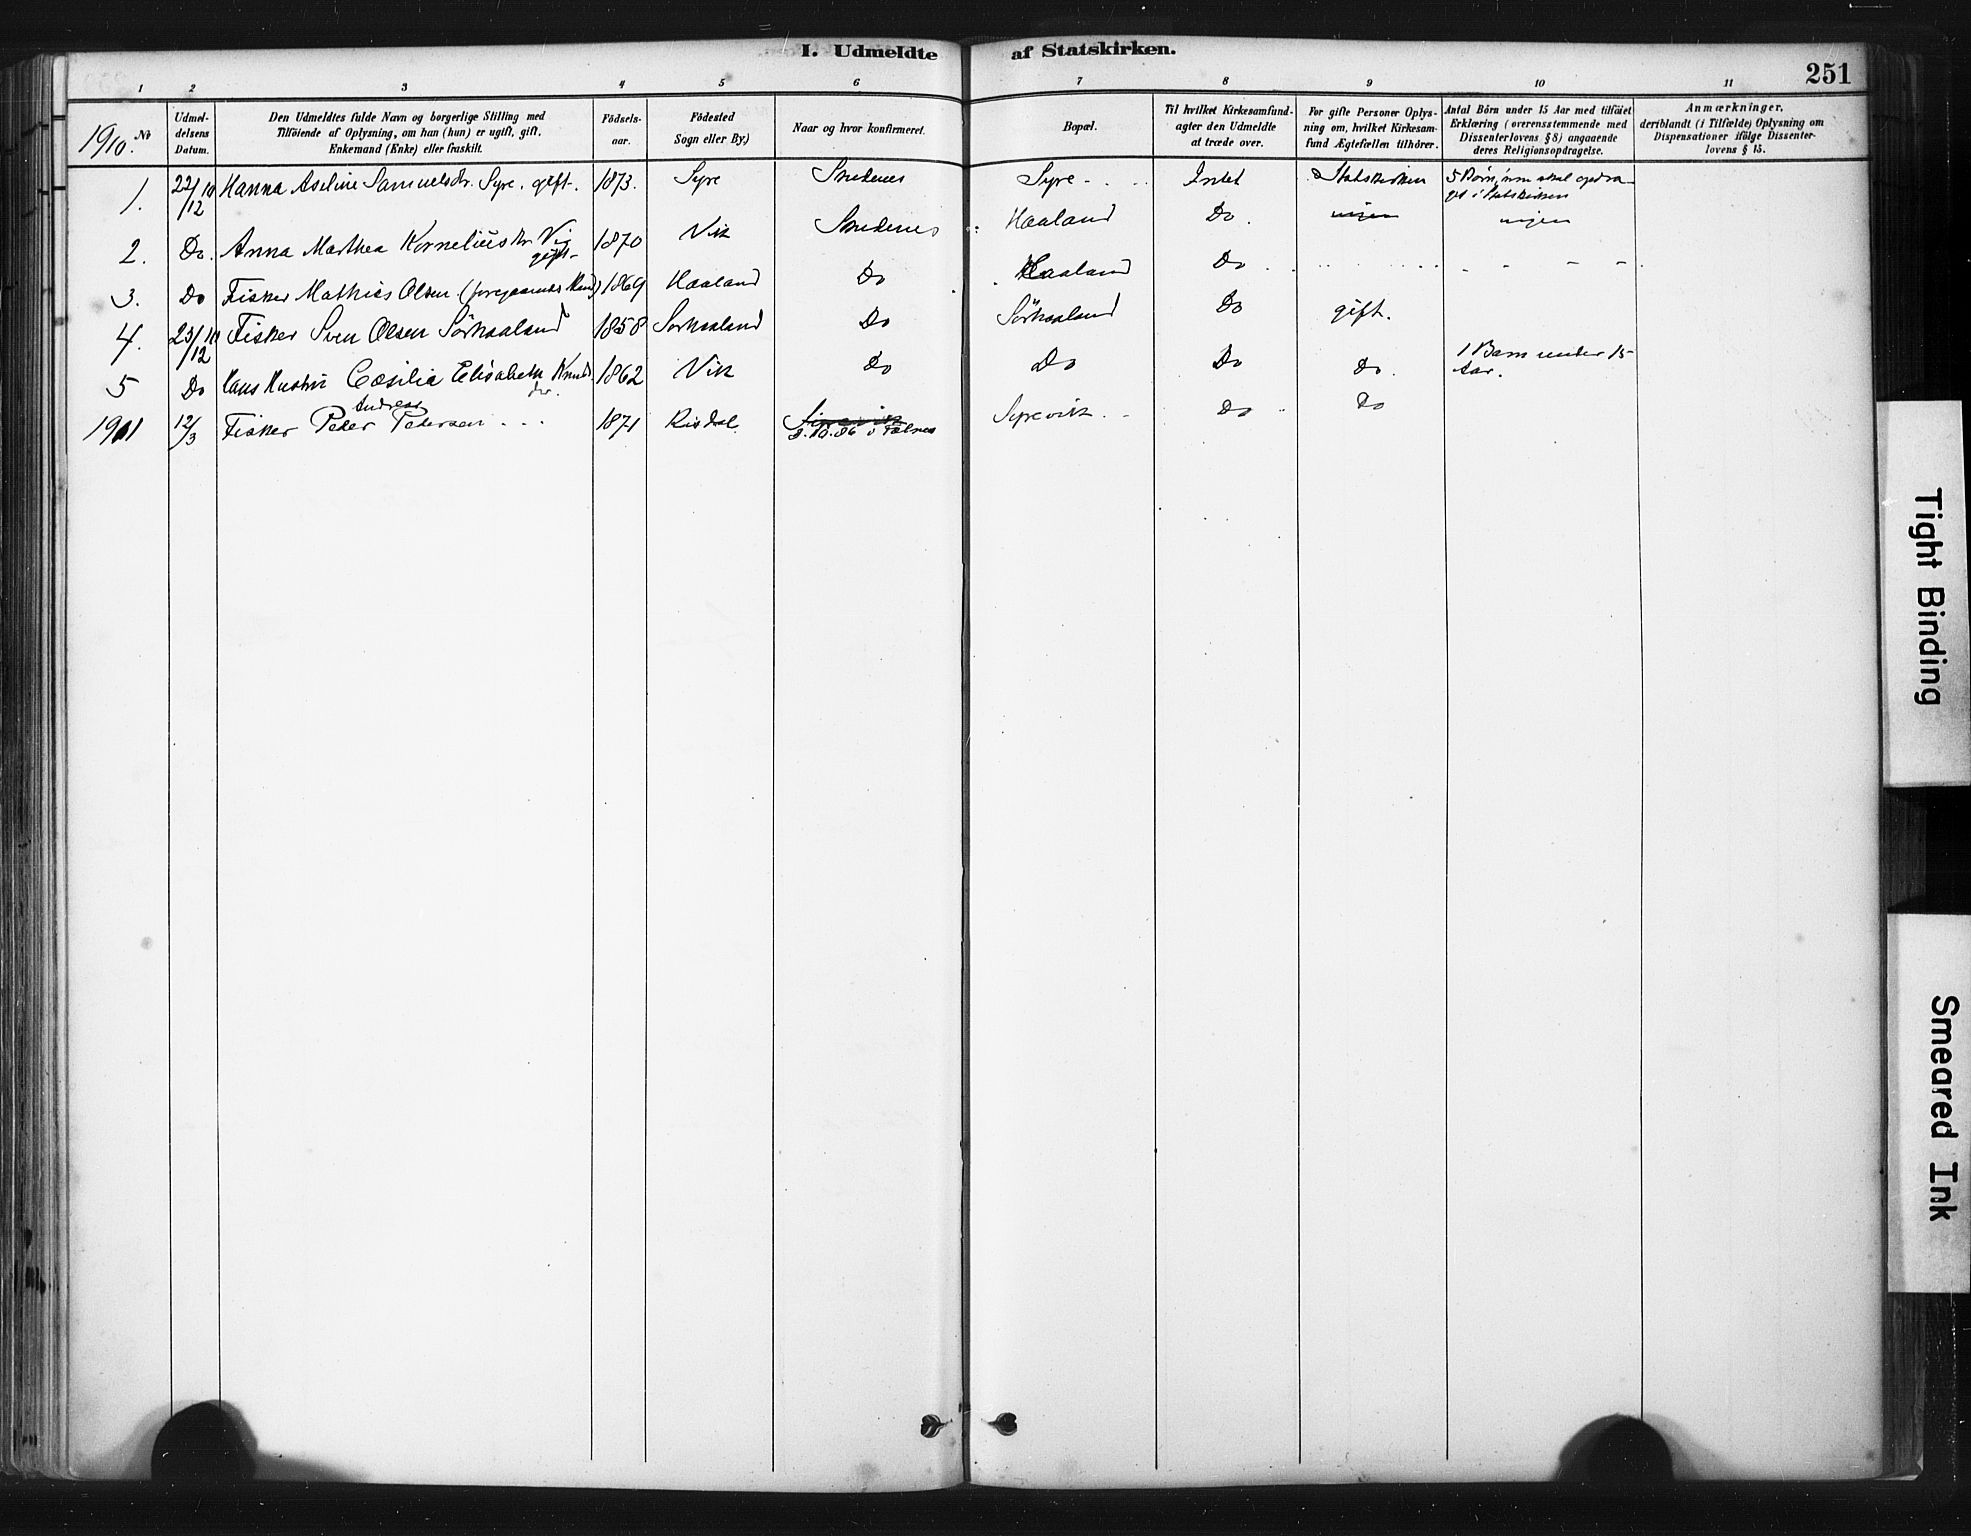 I. Udmeldte af Statskirken.
251
1 2 3 4 5 6 7 8 9 10 11
1910. No
Udmeldelsens Datum.
Den Udmeldtes fulde Navn og borgerlige Stilling med
Tilföiende af Oplysning, om han (hun) er ugift, gift,
Enkemand (Enke) eller fraskilt.
Födselsaar.
Födested
Sogn eller By.)
Naar og hvor konfirmeret.
Bopæl.
Til hvilket Kirkesamfund-
agter den Udmeldte
at træde over.
For gifte Personer Oplys-
ning om, hvilket Kirkesam-
fund Ægtefællen tilhörer.
Antal Börn under 15 Aar med tilföiet
Erklæring (overensstemmende med
Dissenterlovens § 8) angaaende
deres Religionsopdragelse.
Anmærkninger,
deriblandt (i Tilfælde) Oplysning om
Dispensationer ifölge Dissenter-
lovens § 15.
1. 22/12 10 Hanna Aseline Samuelsdr. Syre. gift. 1873. Syre Skudenes Syre Intet Statskirken 5 Börn, som skal opdra-
ges i Statskirken
2. Do. Anna Marthea Korneliusdr. Vig 1870 Vik Skudenes Haaland Do. ingen ingen
gift
3. Do Fisker Mathias Olsen (foregaaendes Mand) 1869 Haaland Do Haaland Do
4. 23/12 10 Fisker Sven Olsen Sörhaaland 1858 Sorhaaland Do Sörhaaland Do gift.
5 Do Hans Hustru Cæsilia Elisabeth Knuds 1862 Vik Do Do Do Do. 1 Barn under 15
dr. Aar.
Andreas
1911 12/3 Fisker Peder Petersen 1871 Risdal Syrevik Do Do
Tight Binding
Smeared Ink